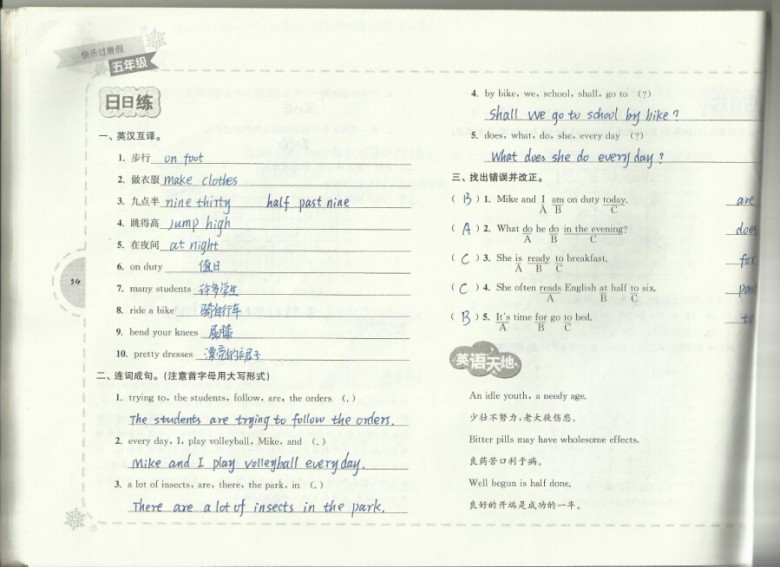 快乐过暑假
五年级
日日练
一、英汉互译。
1. 步行 on foot
2. 做衣服 make clothes
3. 九点半 nine thirty half past nine
4. 跳得高 jump high
5. 在夜间 at night
6. on duty 值日
7. many students 许多学生
8. ride a bike 骑自行车
9. bend your knees 屈膝
10. pretty dresses 漂亮的裙子
二、连词成句。(注意首字母用大写形式)
1. trying to, the students, follow, are, the orders (.)
The students are trying to follow the orders.
2. every day, I, play volleyball, Mike, and (.)
Mike and I play volleyball everyday.
3. a lot of insects, are, there, the park, in (.)
There are a lot of insects in the park.
4. by bike, we, school, shall, go to (?)
Shall we go to school by bike?
5. does, what, do, she, every day (?)
What does she do every day?
三、找出错误并改正。
( B ) 1. Mike and I am on duty today. are
A B C
( A ) 2. What do he do in the evening? does
A B C
( C ) 3. She is ready to breakfast. for
A B C
( C ) 4. She often reads English at half to six.
A B C
( B ) 5. It's time for go to bed. to
A B C
英语天地
An idle youth, a needy age.
少壮不努力,老大徒伤悲。
Bitter pills may have wholesome effects.
良药苦口利于病。
Well begun is half done.
良好的开端是成功的一半。